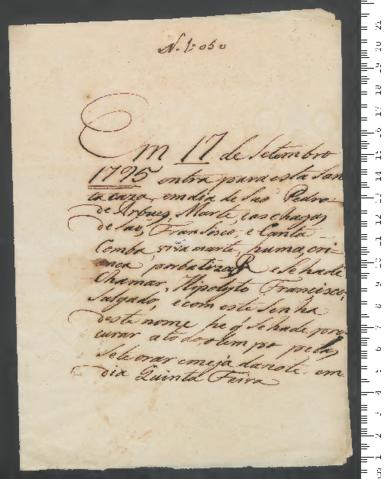 N. 1:050
Em 17 de Setembro
1795 entra para esta San
ta caza, em dia de Sao Pedro
de Arbues, Martir, e as chagas
de Sao Fransisco, e Santa
Comba, huma cri
ença por batizar e se hade
Chamar, Hipolyto Francisco,
Salgado, e com este senha
deste nome he q se hade pro
curar a todo o tempo pelas
da noite em
dia Quinta Feira